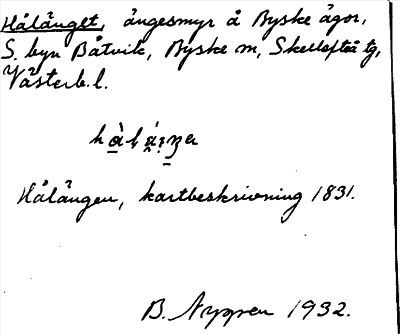 Hålånget, ångesmyr å Byske ägor,
S. byn Båtvik, Byske sn, Skellefteå tg,
Västerb. l.
Hålången, kartbeskrivning 1831.
B. Nygren 1932.